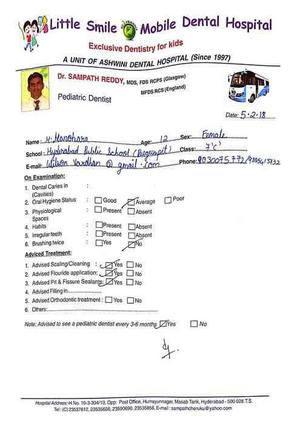 Little Smile Mobile Dental Hospital
Exclusive Dentistry for kids
A UNIT OF ASHWINI DENTAL HOSPITAL (Since 1997)
Dr. SAMPATH REDDY, MDS, FDS RCPS (Glasgow)
MFDS RCS (England)
Pediatric Dentist
Date: 5.2.18
Name: Age: 12 Sex: Female
School: Hyderabad Public School (Begumpet) Class: 7'C'
E-mail: @gmail.com Phone:
On Examination:
1. Dental Caries in :
(Cavities)
2. Oral Hygiene Status : Good Average Poor
3. Physiological : Present Absent
Spaces
4. Habits : Present Absent
5. Irregular teeth : Present Absent
6. Brushing twice : Yes No
Adviced Treatment:
1. Advised Scaling/Cleaning : Yes No
2. Advised Flouride application: Yes No
3. Advised Pit & Fissure Sealants: Yes No
4. Advised Filling in
5. Advised Orthodontic treatment : Yes No
6. Others:
Note: Advised to see a pediatric dentist every 3-6 months Yes No
Hospital Address: H.No. 10-3-304/13, Opp: Post Office, Humayunnagar, Masab Tank, Hyderabad - 500 028 T.S.